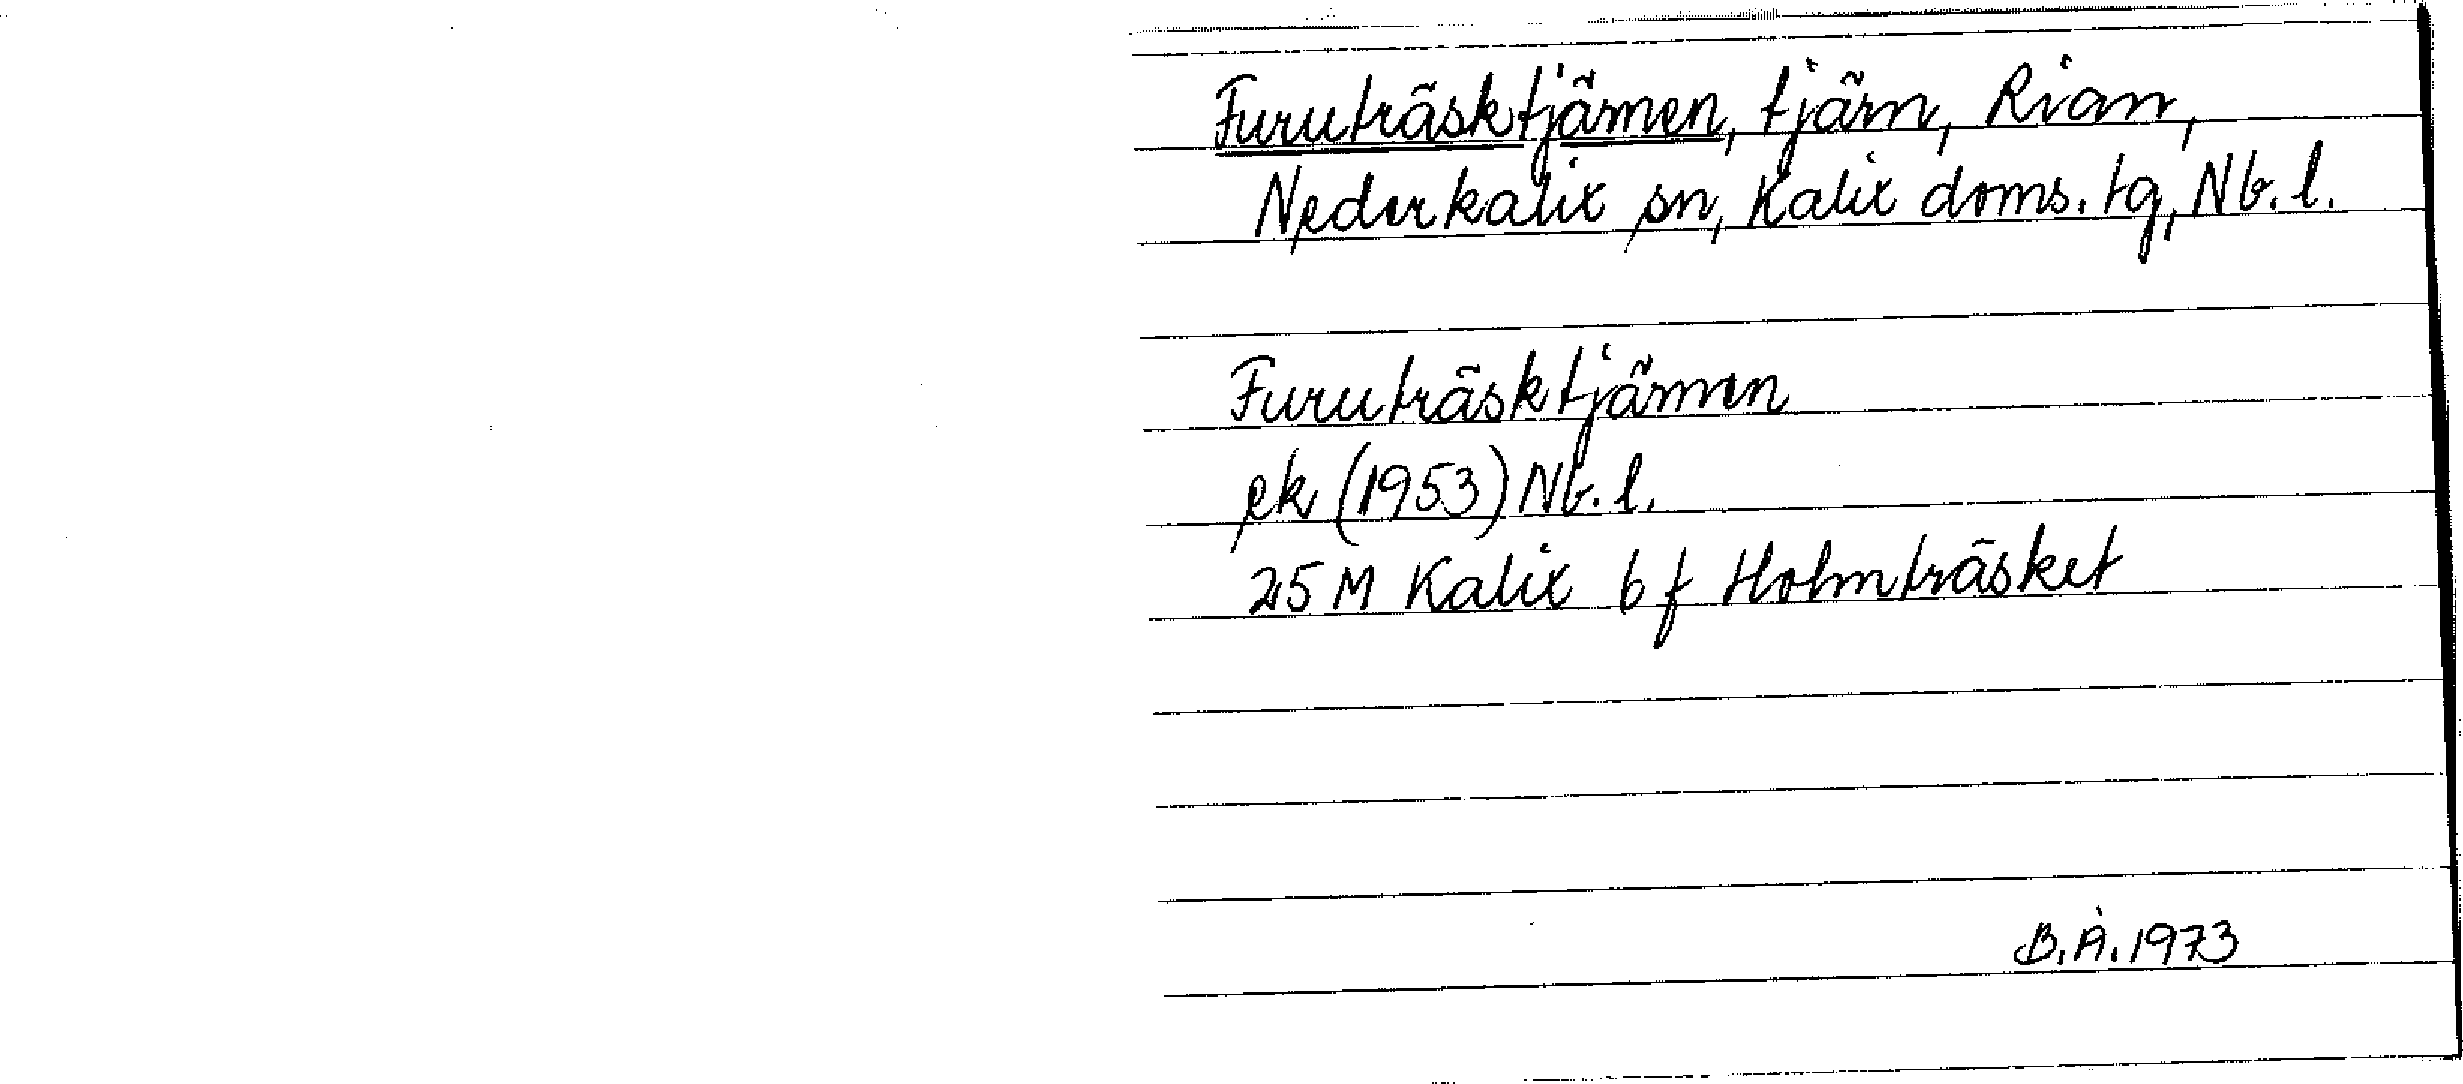 Furuträsktjärnen, tjärn, Rian,
Nederkalix sn, Kalix doms. tg, Nb. l.
Furuträsktjärnen
ek (1953) Nb. l.
25 M Kalix 6 f Holmträsket
B.Å. 1973